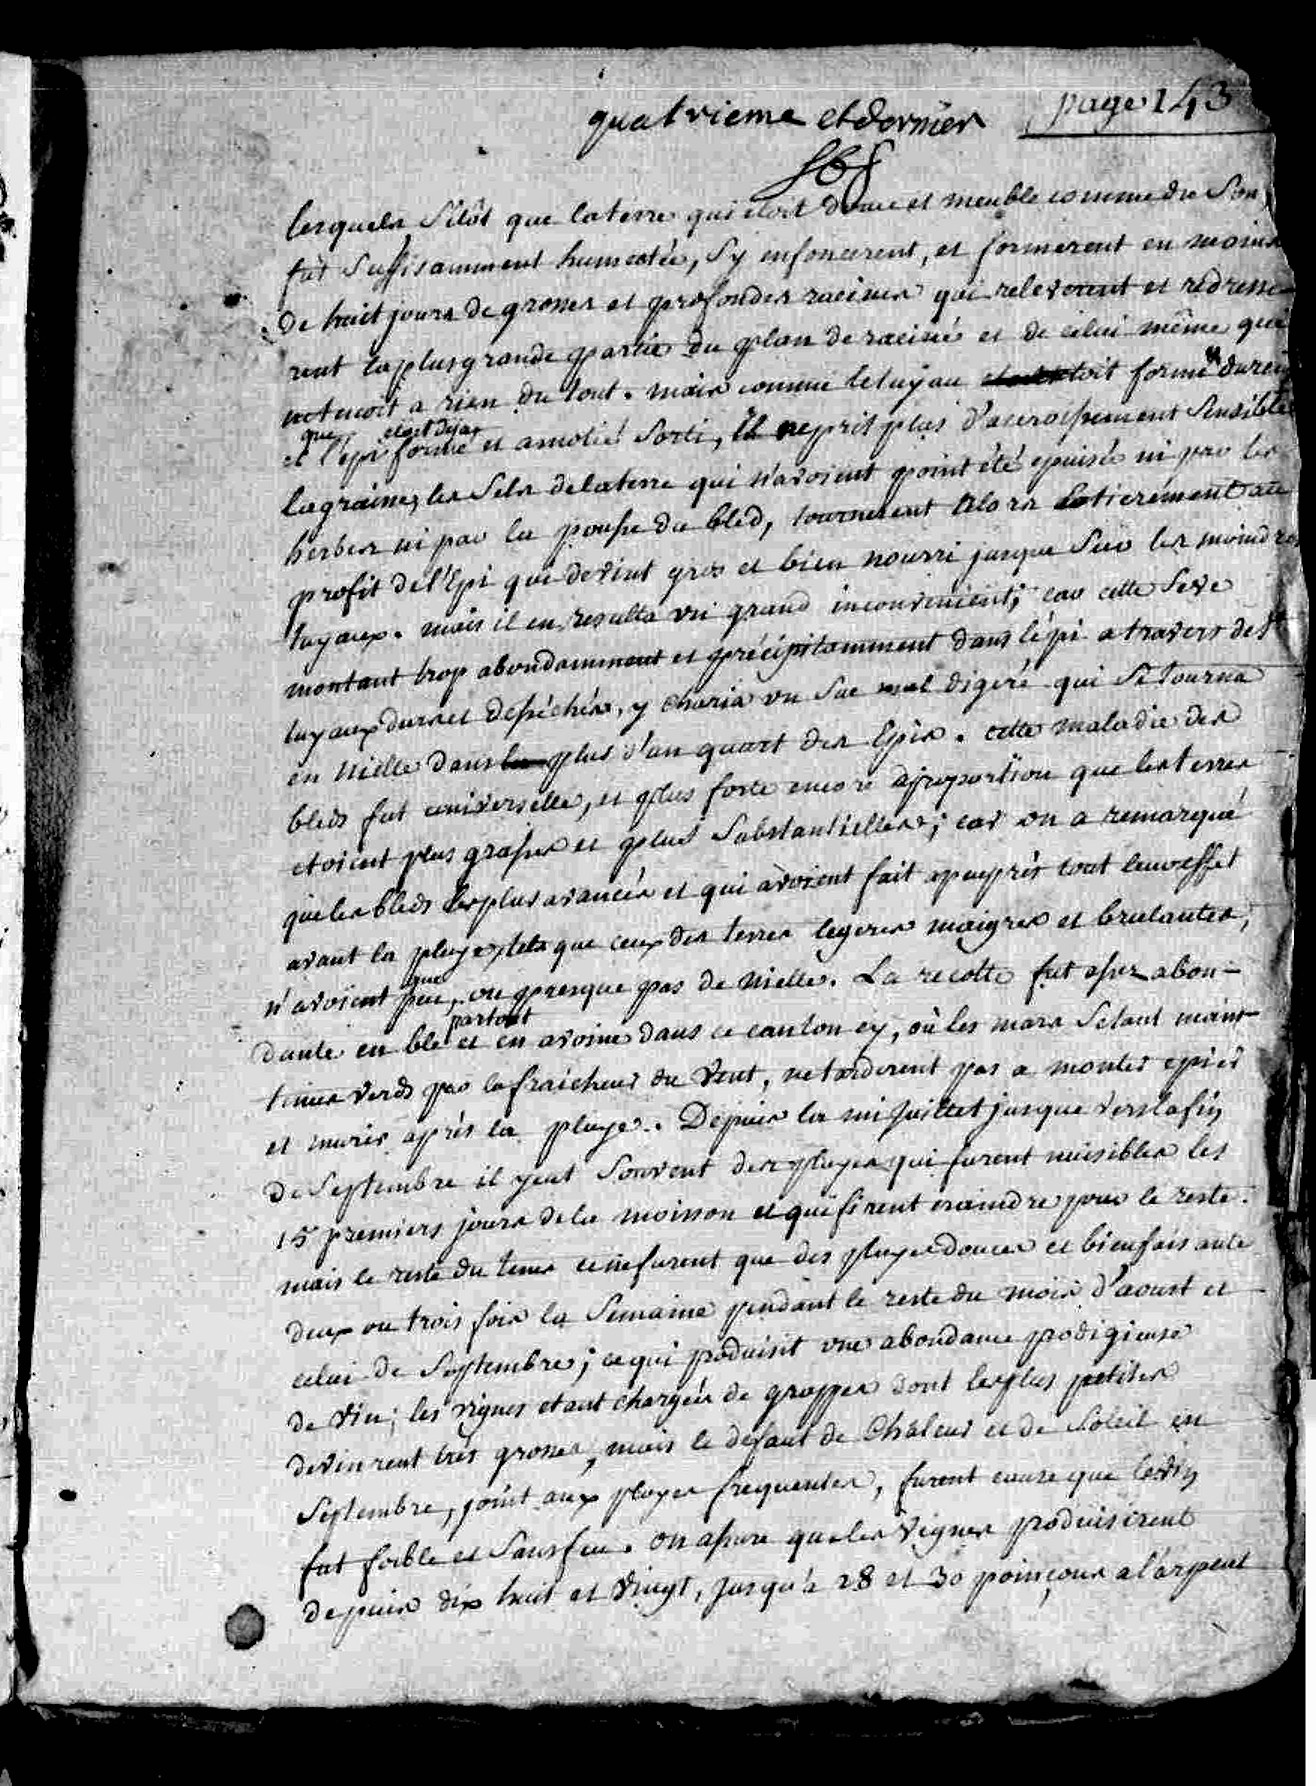 quatrieme et dernier
page 143
lesquels sitôt que la terre qui etoit douce et meuble comme du son
fut suffisamment humectée, s'y enfoncerent, et formerent en moins
de huit jours de grosses et profondes racines qui releverent et redresse-
rent la plus grande partie du plan de raciné et de celui même qui
ne tenoit a rien du tout. mais comme le tuyau etoit formé durci
que etoit deja
et l'epi formé et amoitié sorti, il ne prit plus d'accroissement sensible
la graine, les sels de la terre qui n'avoient point été epuisés ni par les
herbes ni par la pousse du bled, tournerent alors entierement au
profit de l'Epi qui devint gros et bien nourri jusque sur les moindres
tuyaux. mais il en resulta un grand inconvenient; car cette seve
montant trop abondamment et précipitamment dans l'épi a travers de
tuyaux durs et dessechés, y charia un suc mal digéré qui se tourna
en nielle dans plus d'un quart des Epis. cette maladie des
bleds fut universelle, et plus forte encore aproportion que les terres
etoient plus grasses et plus substantielles; car on a remarqué
que les bleds les plus avancés et qui avoient fait apeuprés tout leur effet
avant la pluye, tels que ceux des terres legeres maigres et brulantes,
que
n'avoient peu, ou presque pas de nielle. La recolte fut assez abon-
partout
dante en blé et en avoine dans ce canton cy, où les mars setant maint-
tenus verds par la fraicheur du vent, ne tarderent pas a monter epier
et murir après la pluye. Depuis la mi Juillet jusque vers la fin
de Septembre il y eut souvent des pluyes qui furent nuisibles les
15 premiers jours de la moisson et qui firent craindre pour le reste.
mais le reste du tems ce ne furent que des pluyes douces et bienfaisante
deux ou trois fois la semaine pendant le reste du mois d'aoust et
celui de Septembre; ce qui produisit une abondance prodigieuse
de vin; les vignes etant chargées de grappes dont les plus petites
devinrent tres grosses, mais le defaut de chaleur et de soleil en
Septembre, joint aux pluyes frequentes, furent cause que le vin
fut foible et sans feu. on assure que les vignes produisirent
depuis dix huit et vingt, jusqu'à 28 et 30 poinçons a l'arpent